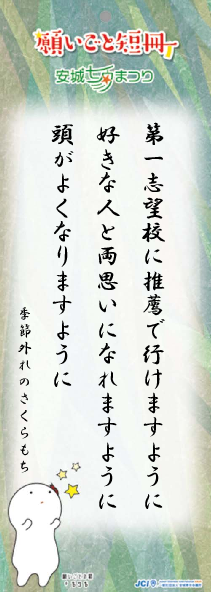 願いごと短冊
安城七夕まつり
第一志望校に推薦で行けますように
好きな人と両思いになれますように
頭がよくなりますように
季節外れのさくらもち
JCI